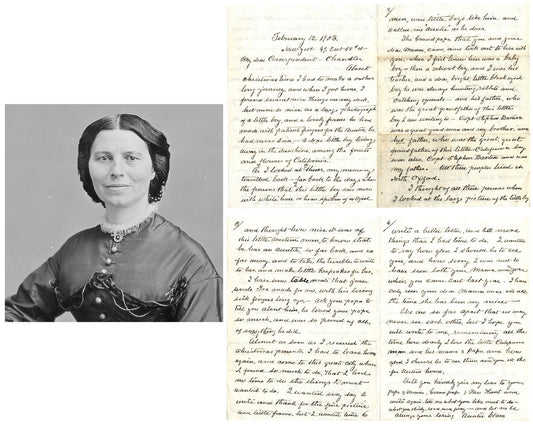 February 12, 1903.
New York. 49. East 58" St.
My dear Correspondent - Chandler
About
christmas time I had to make a rather
long journey, and when I got home, I
found several nice things in my
but none so nice as a large photograph
of a little boy, and a lovely frame he had
made with patient fingers for the Auntie, he
had never seen - A dear little boy living
away in the sunshine, among the fruits
and flowers of California.
As I looked at these, my memory
travelled back - far back to the days when
the persons that this little boy seen now
with white hair or been spoken of as aged
2/
men, were little boys like him and
called me "Auntie" as he does.
The Grand papa that you and your
dear Mama, came, and took out to live with
you, when I first knew him was a baby
boy - then a school boy, and I was his
teacher, and a dear, bright little black eyed
boy he was always hunting, rabbits and
catching squirrels - and his father, who
was the great grandfather of this little
boy I am writing to - Capt Stephen Barton
was a great good man and my brother, and
his father, who was the great, great
grandfather of this little California boy
was also, Capt. Stephen Barton and was
my father. All these people lived in
North Oxford.
I thought of all these persons when
I looked at the large picture of the little boy
3/
and thought how nice it was of
this little western man to know that
he has an auntie, so far back, and so
far away, and to take the trouble to write
to her and make little keepsakes for her.
I have some table mats that your
papa Ira made for me, with his living
sick fingers long ago - ask your papa to
tell you about him, he loved your papa
so much, and was so proud of all,
of everything he did.
Almost as soon as I received the
christmas presents I had to leave home
again, and come to this great city where
I found so much to do, that I took
no time to do the things I most
wanted to do. I wanted every day to
write and thank for the fine picture
and little frame, but I wanted time to
4/
write a little letter, and tell more
things than I had time to do. I wanted
to say how glad I should be to see
you, and how sorry I was not to
have seen both your Mama and you
when you came East last year. I have
only seen your dear Mama once in all
the time she has been my niece -
We are so far apart that we may
never see each other, but I hope you
will write to me remembering all the
time how dearly I love the little California
man, and his mama & Papa and how
glad I should be to see them and you in the
far Western home.
Will you kindly give my love to your
papa & Mama, Grand papa & Mrs. and
write again, tell me what you like most to do -
what you study, read, and play - and let me be
always your loving Auntie Clara